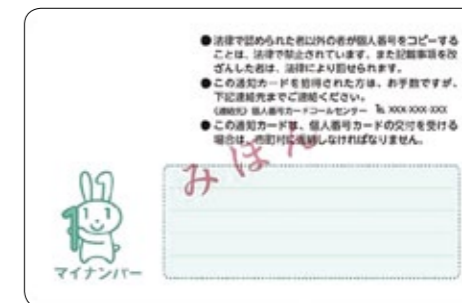 ●法律で認められた者以外の者が個人番号をコピーする
ことは、法律で禁止されています。また記載事項を改
ざんした者は、法律により罰せられます。
●この通知カードを拾得された方は、お手数ですが、
下記連絡先までご連絡ください。
《連絡先》個人番号カードコールセンター ℡ XXX-XXX-XXX
●この通知カードは、個人番号カードの交付を受ける
場合は、市町村に返納しなければなりません。
みほん
マイナンバー